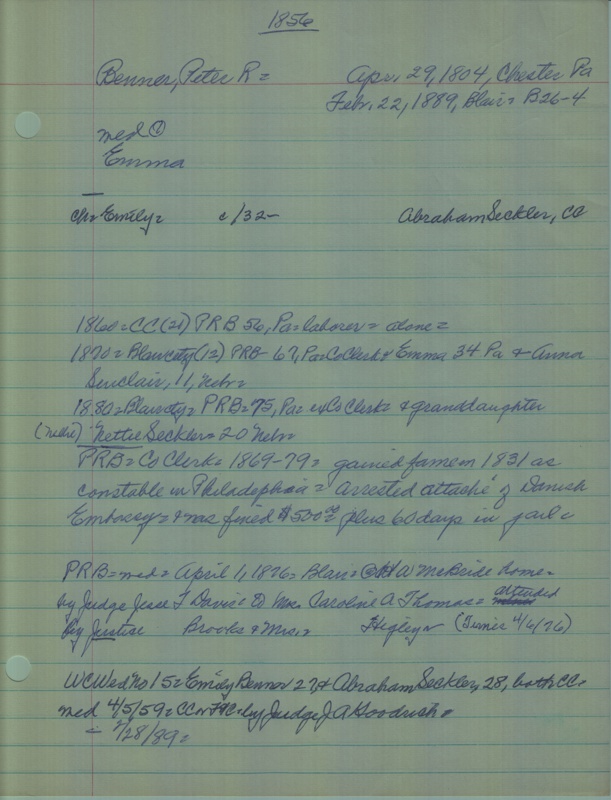 1856
Benner, Peter R = Apr. 29, 1804, Chester Pa
Febr. 22, 1889, Blair = B26-4
med ①
Emma
ch = Emily = c/32- Abraham Seckler, CC
1860 = CC (21) PRB 56, Pa = laborer = alone =
1870 = Blair city (12) PRB - 67, Pa = Co Clerk & Emma 34 Pa & Anna
Sinclair, 11, Nebr =
1880 = Blair city = PRB = 75, Pa = ex Co Clerk = & granddaughter
(Nellie) Nettie Seckler = 20 Nebr =
PRB = Co Clerk = 1869-79 = gained fame in 1831 as
constable in Philadelphia = arrested attache' of Danish
Embassy = & was fined $500.00 plus 60 days in jail =
PRB = med = April 1, 1876 = Blair = @ W McBride home =
by Judge Jesse T Davis = to Mrs. Caroline A Thomas = attended
by Justice Brooks & Mrs. = Higley = (Times 4/6/76)
WC Wed No 15 = Emily Benner 27, & Abraham Seckler, 28, both CC =
med 4/5/59 = CC = by Judge J A Goodrich =
= 7/28/89 =